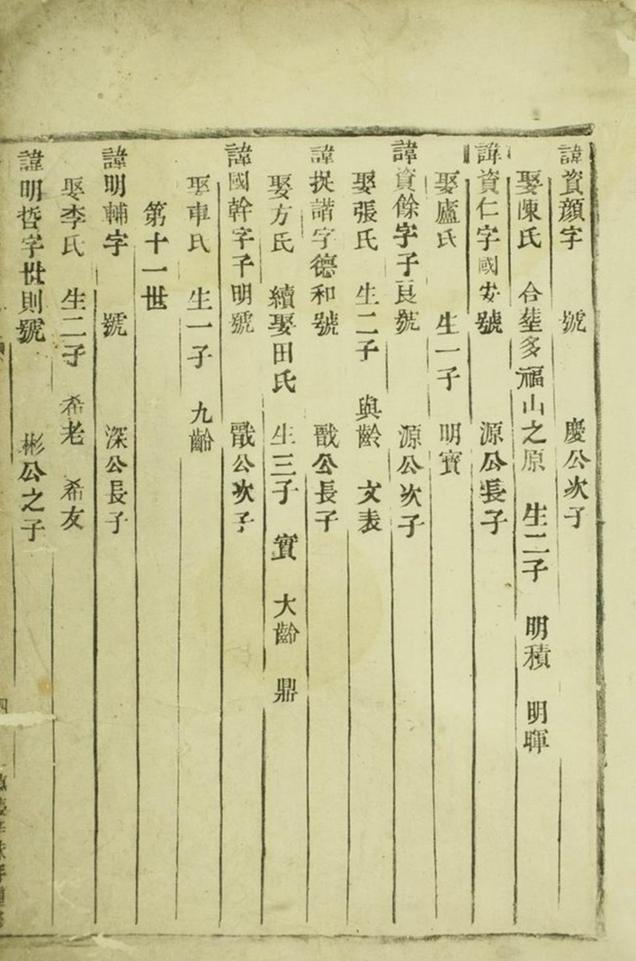 諱資顏字 號 慶公次子
娶陳氏 合塟多福山之原 生二子 明積 明暉
諱資仁字國安號 源公長子
娶廬氏 生一子 明寶
諱資餘字子良號 源公次子
娶張氏 生二子 與齡 文表
諱 諧字德和號 戩公長子
娶方氏 續娶田氏 生三子 實 大齡 鼎
諱國幹字子明號 戩公次子
娶車氏 生一子 九齡
第十一世
諱明輔字 號 深公長子
娶李氏 生二子 希老 希友
諱明哲字世則號 彬公之子
四